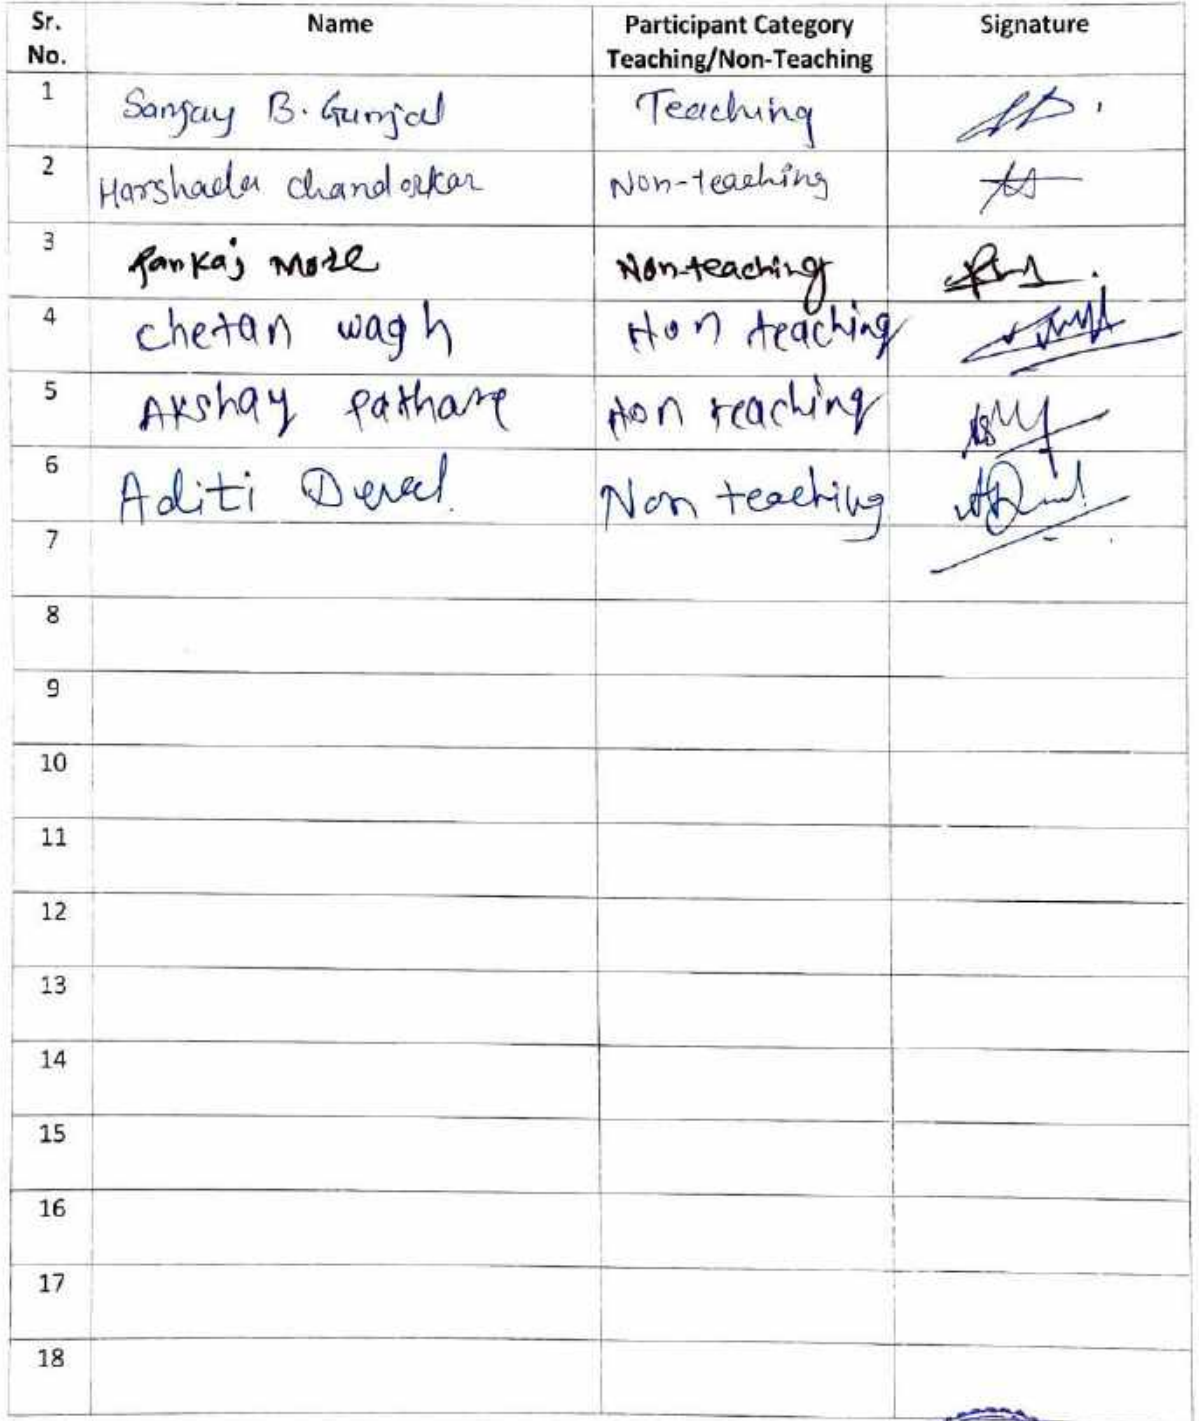 Sr. No. Name Participant Category Teaching/Non-Teaching Signature
1 Sanjay B. Gunjal Teaching
2 Harshada Chandorkar Non-teaching
3 Pankaj More Non-teaching
4 Chetan wagh Non teaching
5 Akshay Pathare Non teaching
6 Aditi Non teaching
7
8
9
10
11
12
13
14
15
16
17
18